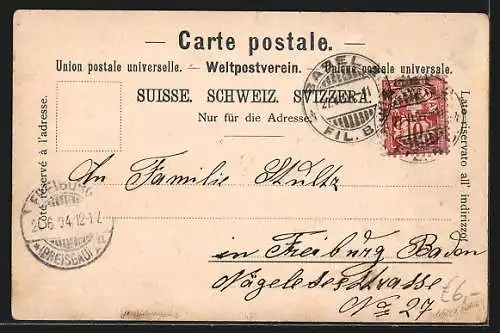 — Carte postale. —
Union postale universelle. — Weltpostverein. — Unione postale universale.
SUISSE. SCHWEIZ. SVIZZERA.
Nur für die Adresse.
Côté réservé à l'adresse.
Lato riservato all' indirizzo.
BASEL
FIL. B
10
An Familie Stultz
FREIBURG
26 6 94 12-1
(BREISGAU)
in Freiburg Baden
Nägeleseestrasse
No 27
£6,-